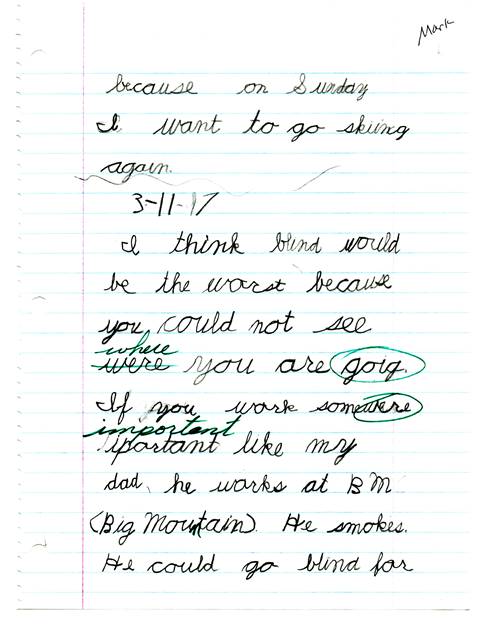 Mark
because on Sunday
I want to go skiing
again.
3-11-17
I think blind would
be the worst because
you, could not see
where
were you are goig.
If you work somewere
important
iportant like my
dad, he works at BM
(Big Mountain). He smokes.
He could go blind for